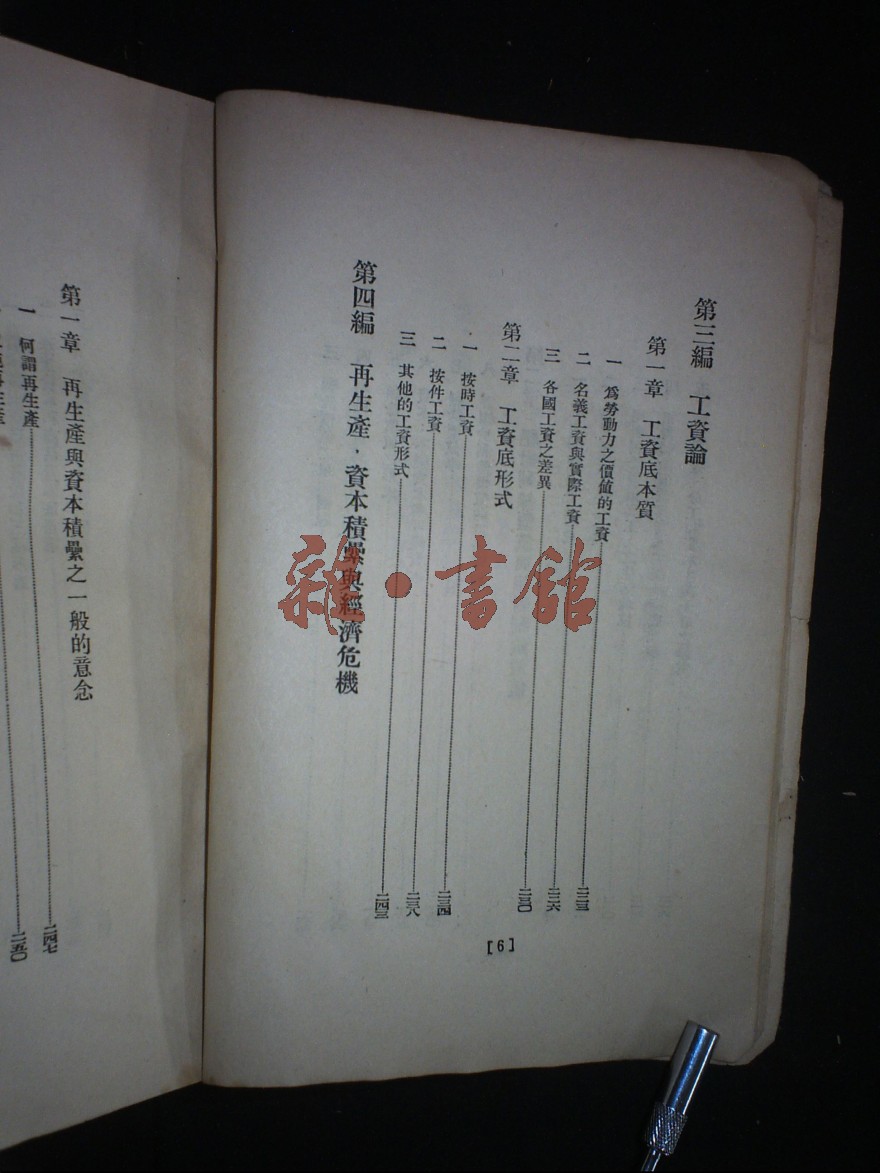 第三編　工資論
第一章　工資底本質
一　爲勞動力之價値的工資……二二三
二　名義工資與實際工資……二二六
三　各國工資之差異……二三〇
第二章　工資底形式
一　按時工資……二三四
二　按件工資……二三八
三　其他的工資形式……二四三
第四編　再生產，資本積纍與經濟危機
[6]
第一章　再生產與資本積纍之一般的意念
一　何謂再生產……二四七
再生產……二五〇
雜·書館